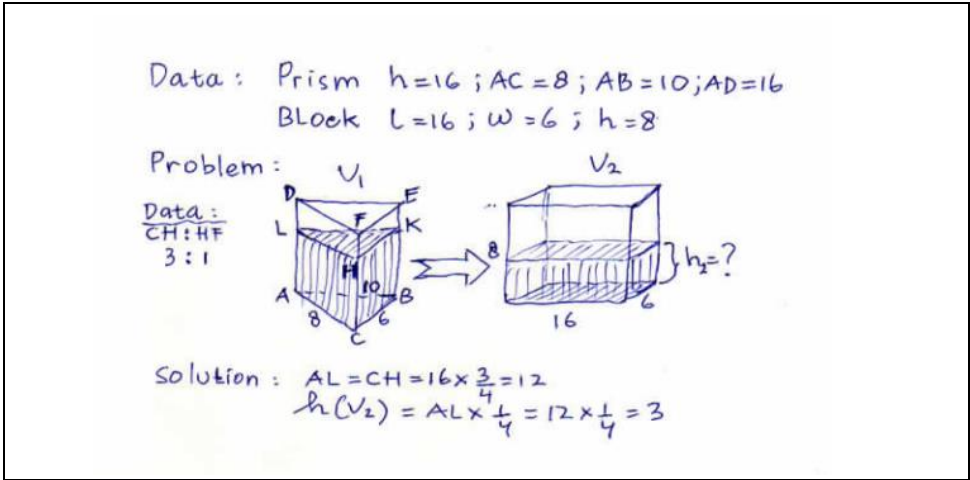 Data : Prism h=16 ; AC = 8 ; AB = 10 ; AD=16
BLock l=16 ; w=6 ; h=8
Problem :
V₁
V₂
Data :
CH : HF
3 : 1
D
E
F
L
K
H
A
10
B
8
6
C
8
h₂=?
6
16
Solution : AL = CH = 16 × 3/4 = 12
h(V₂) = AL × 1/4 = 12 × 1/4 = 3